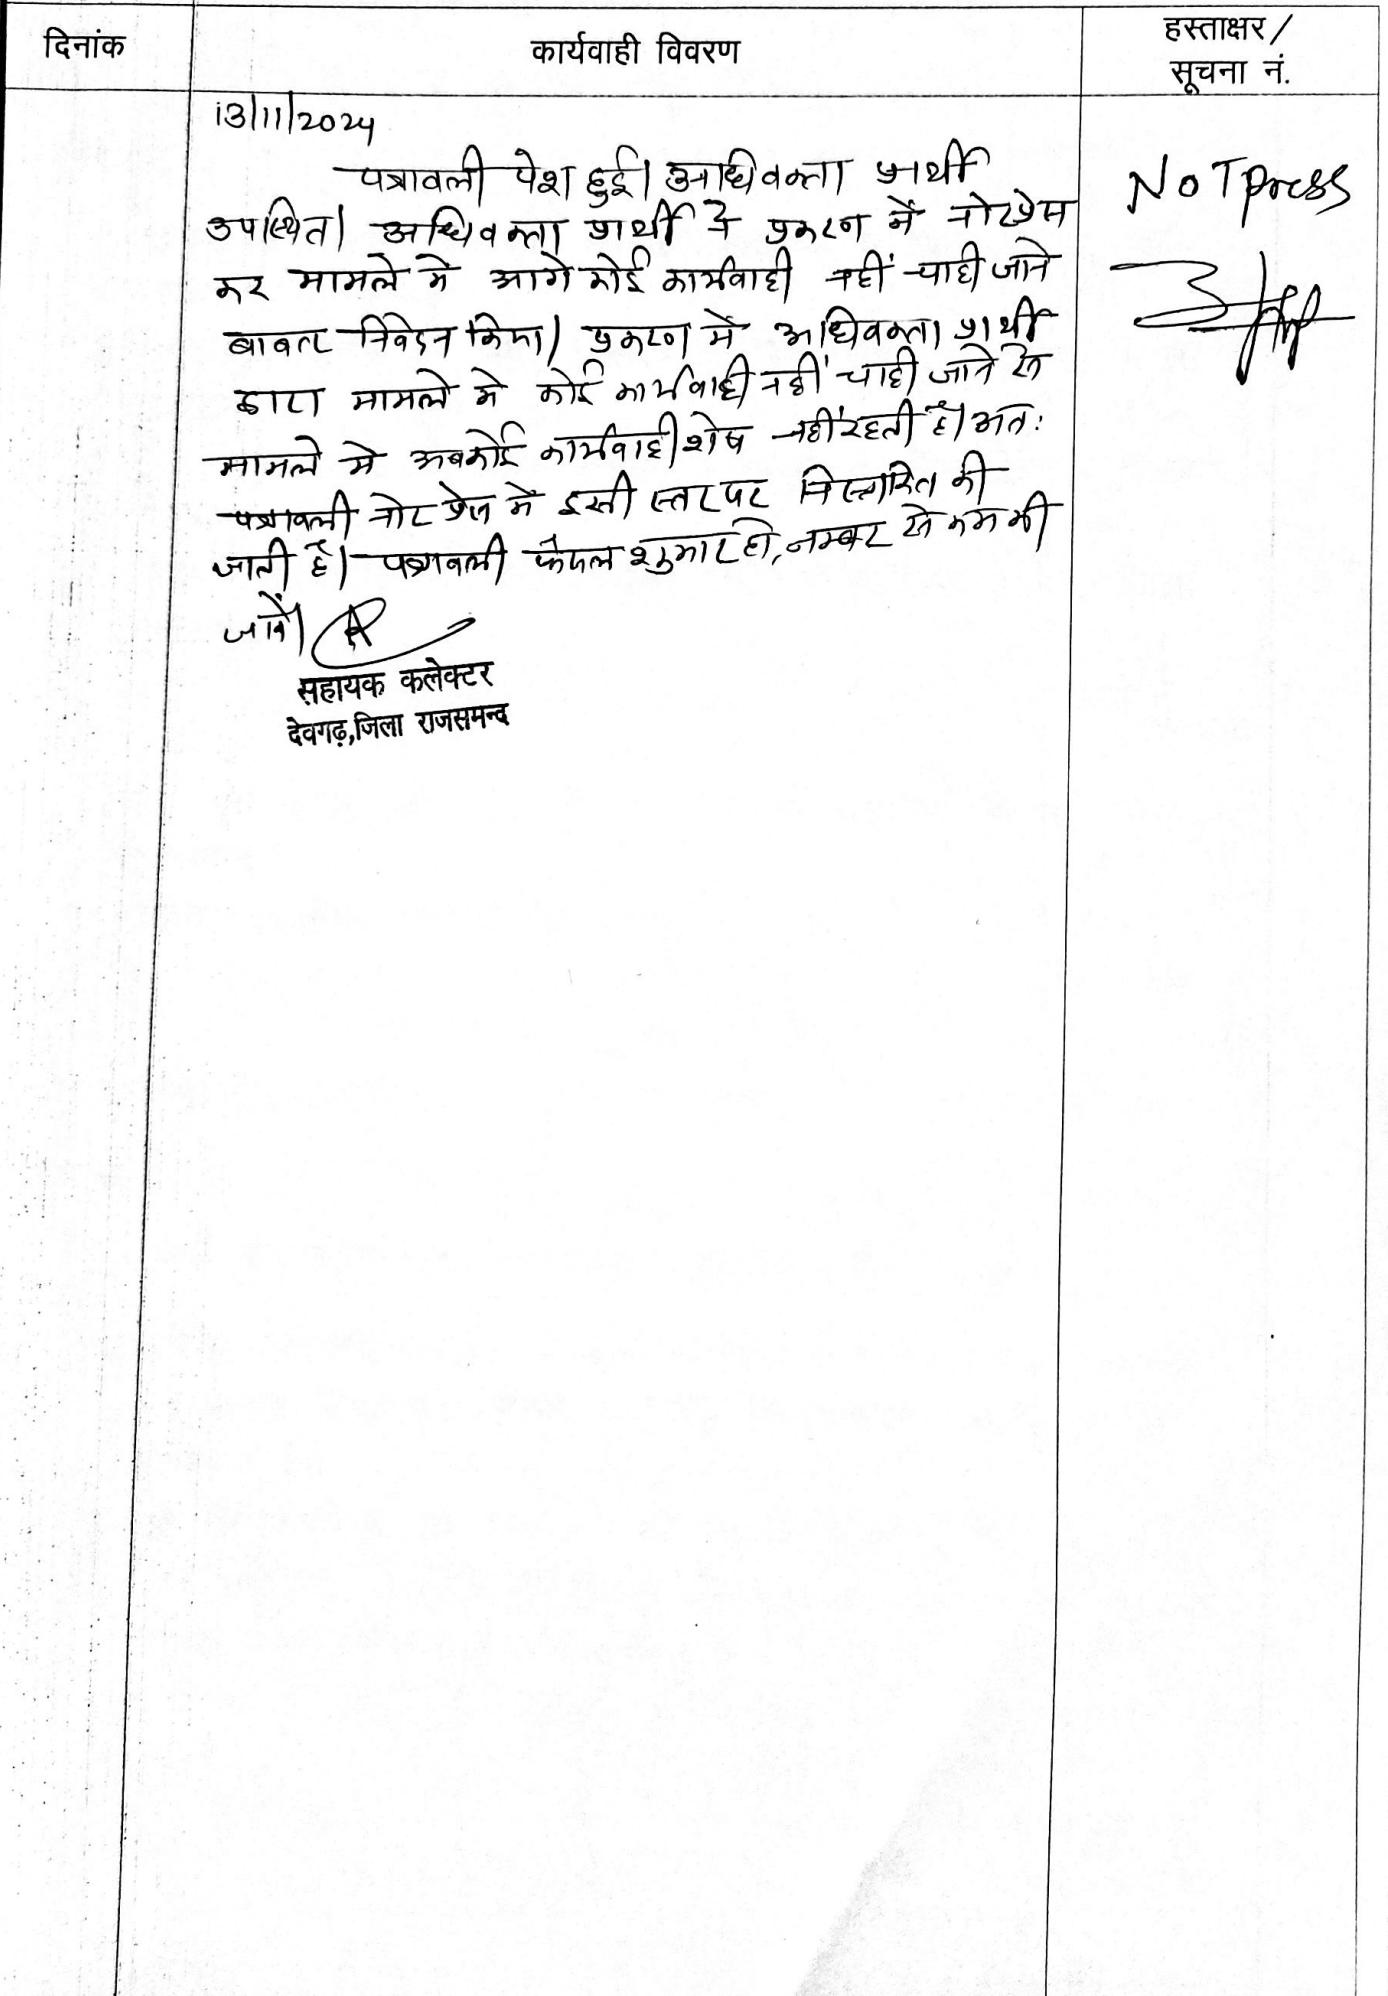 दिनांक
कार्यवाही विवरण
हस्ताक्षर/
सूचना नं.
13/11/2024
पत्रावली पेश हुई। अधिवक्ता प्रार्थी
उपस्थित। अधिवक्ता प्रार्थी ने प्रकरण में नोटप्रेस
कर मामले मे आगे कोई कार्यवाही नहीं चाही जाने
बाबत निवेदन किया। प्रकरण में अधिवक्ता प्रार्थी
द्वारा मामले मे कोई कार्यवाही नहीं चाही जाने से
मामले मे अब कोई कार्यवाही शेष नहीं रहती है। अतः
पत्रावली नोट प्रेस में इसी स्तर पर निस्तारित की
जाती है। पत्रावली फैसल शुमार हो, नम्बर से कम की
जावें।
सहायक कलेक्टर
देवगढ़,जिला राजसमन्द
NOT press